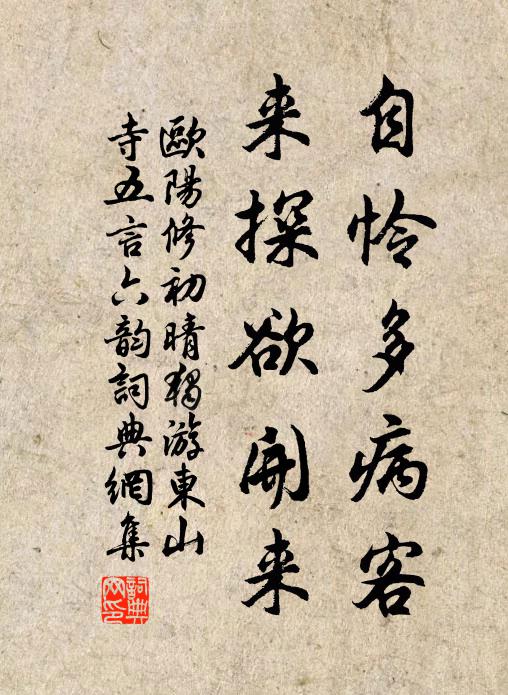 自怜多病客
来探欲開来
歐陽修初晴獨游東山
寺五言六韵詞典網集
詞典网印